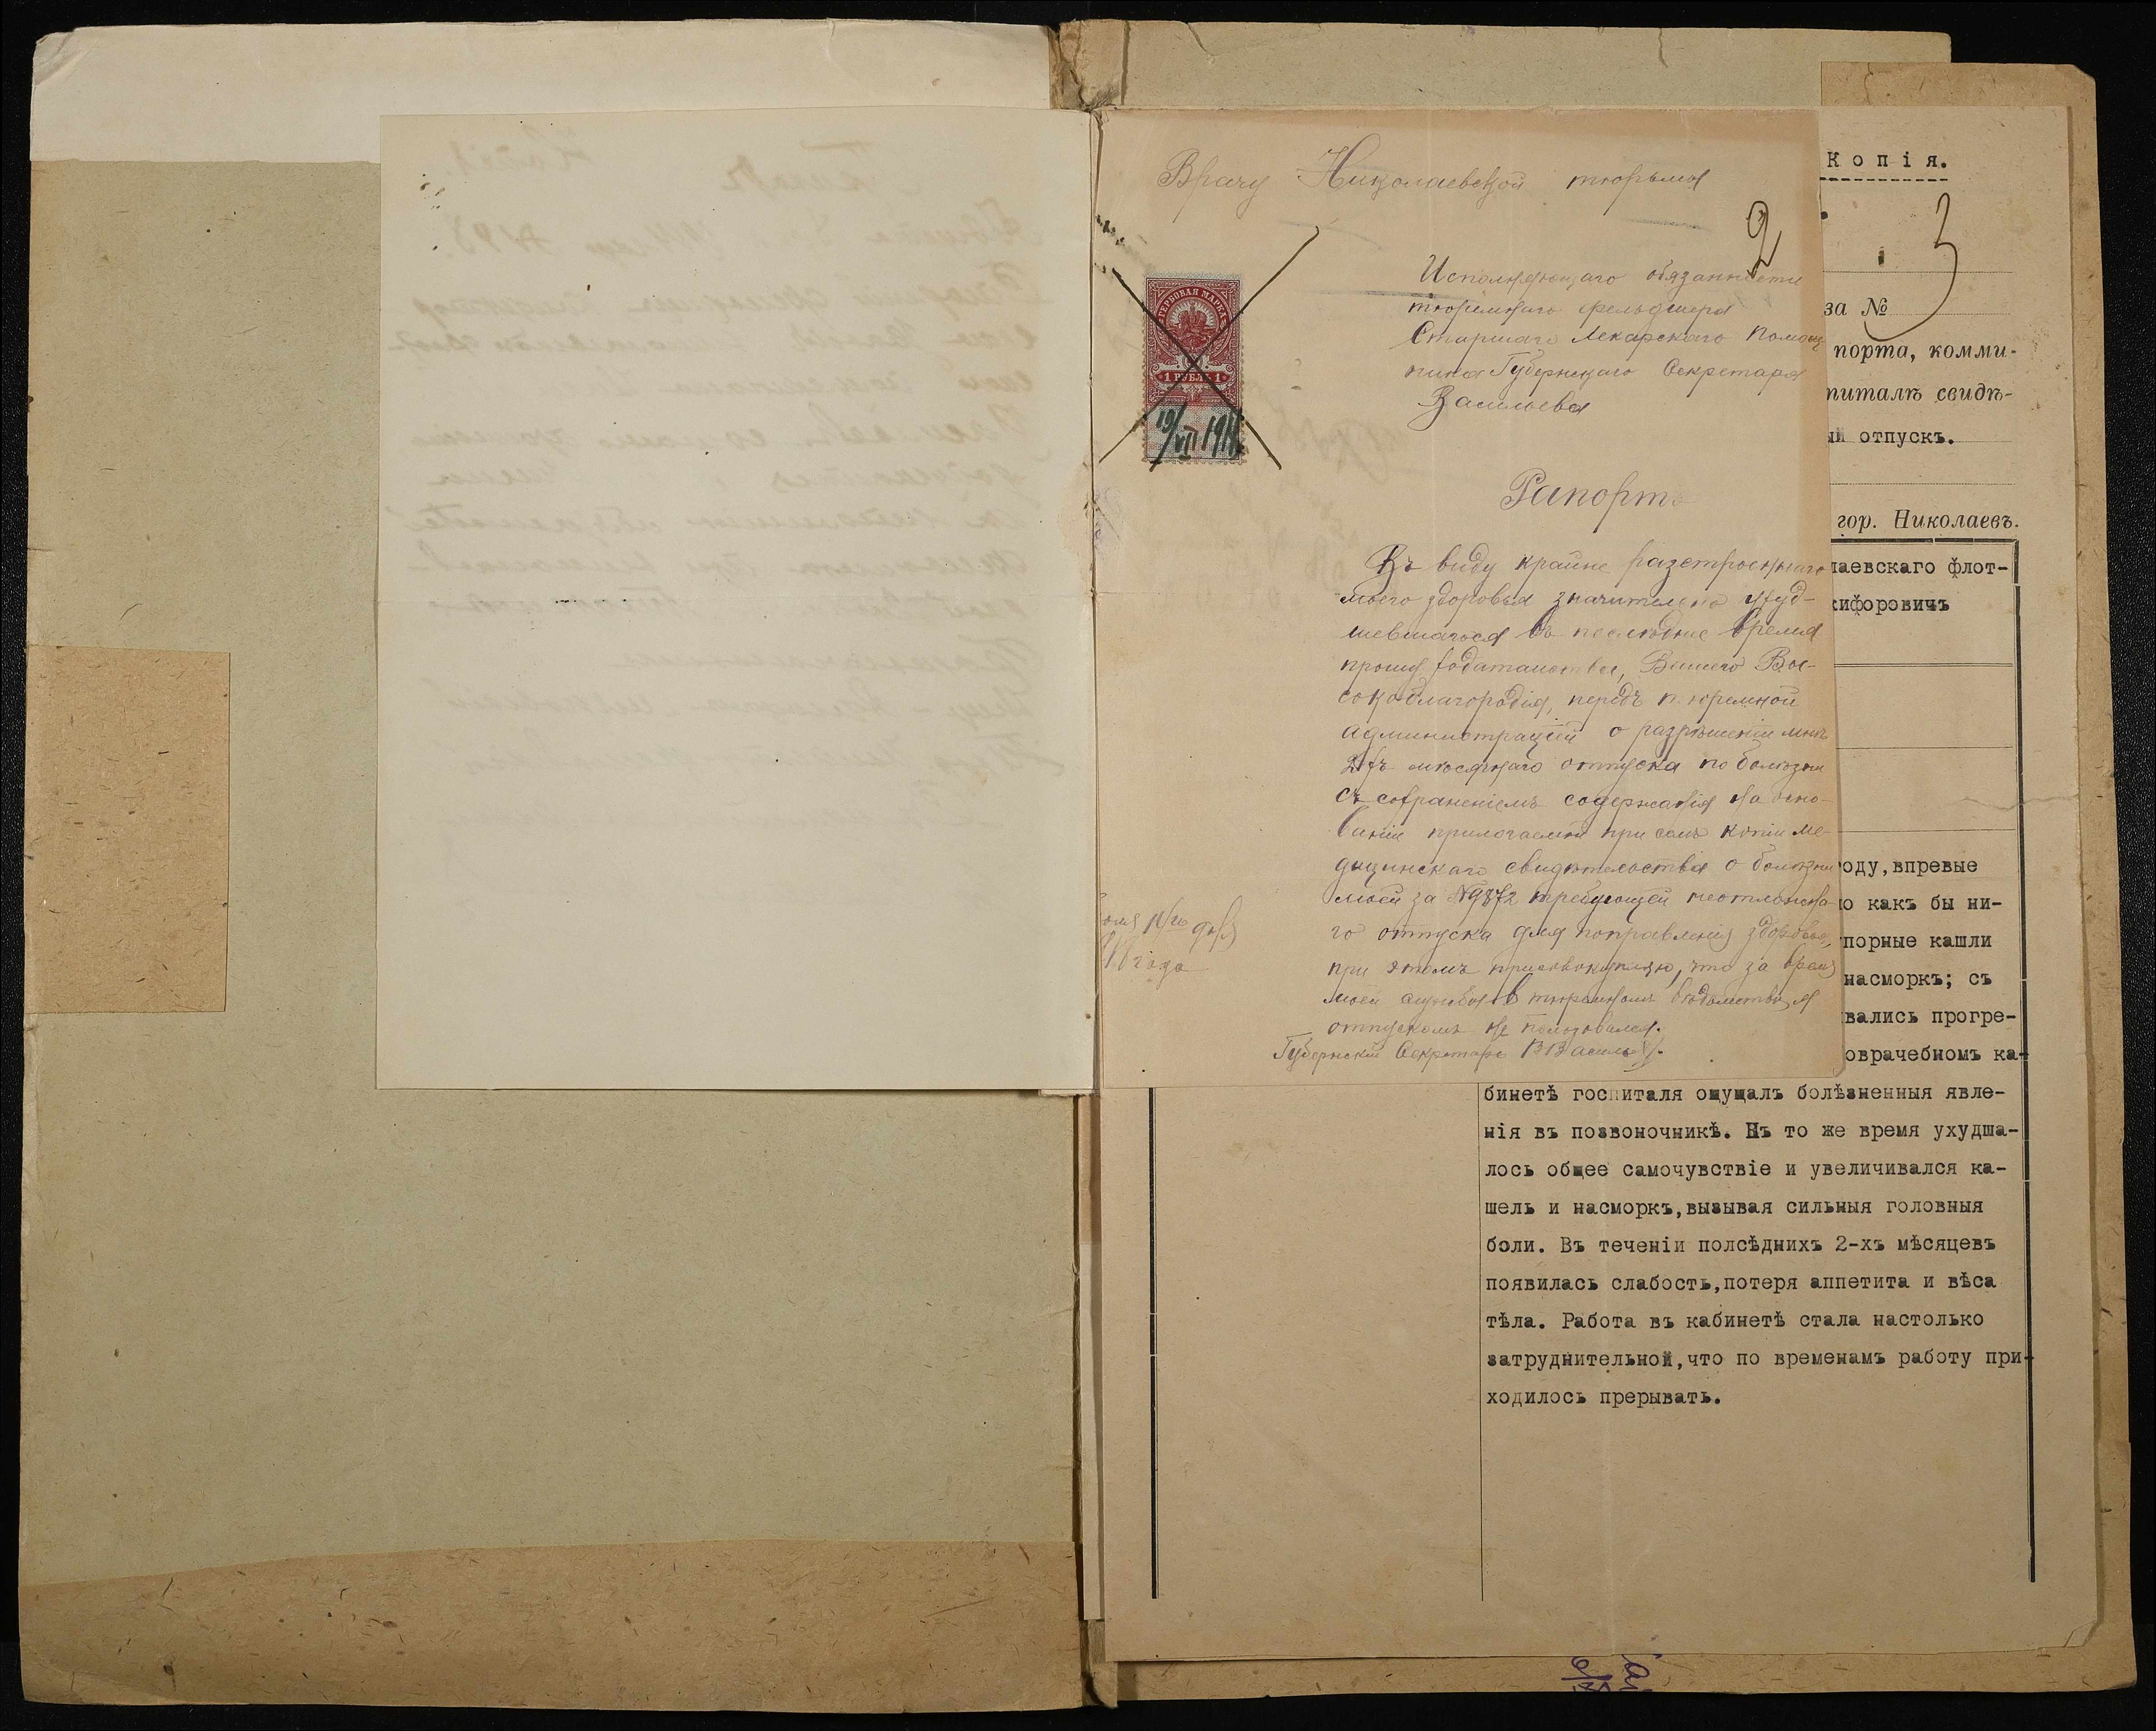 Врачу Николаевской тюрьмы
2
Исполняющаго обязанности
тюремнаго фельдшера
Старшаго Лекарскаго Помощ
ника Губернскаго Секретаря
Васильева
ГЕРБОВАЯ МАРКА
1 РУБЛЬ 1
19/VII 191
Рапортъ
Въ виду крайне разстроеннаго
моего здоровья значительно ухуд-
шевшагося въ последнее время
прошу ходатайства, Вашего Вы-
сокоблагородія, передъ тюремной
администраціей о разрѣшеніи мнѣ
2хъ мѣсячнаго отпуска по болѣзни
съ сохраненіемъ содержанія на осно-
ваніи прилагаемой при семъ копіи ме-
дицинскаго свидѣтельства о болѣзни
моей за №9872 требующей неотложна-
го отпуска для поправленія здоровья,
при этомъ присовокупляю, что за время
моей службы въ тюремномъ вѣдомстве, я
отпускомъ не пользовался.
Губернскій Секретарь В Васильев.
дня
года
Копія.
3
за №
порта, комми-
питалѣ свидѣ-
ый отпускъ.
гор. Николаевъ.
лаевскаго флот-
кифоровичъ
оду,впревые
о какъ бы ни-
порные кашли
насморкъ; съ
вались прогре-
оврачебномъ ка-
бинетѣ госпиталя ощущалъ болѣзненныя явле-
нія въ позвоночникѣ. Въ то же время ухудша-
лось общее самочувствіе и увеличивался ка-
шель и насморкъ,вызывая сильныя головныя
боли. Въ теченіи полсѣднихъ 2-хъ мѣсяцевъ
появилась слабость,потеря аппетита и вѣса
тѣла. Работа въ кабинетѣ стала настолько
затруднительной,что по временамъ работу при-
ходилось прерывать.